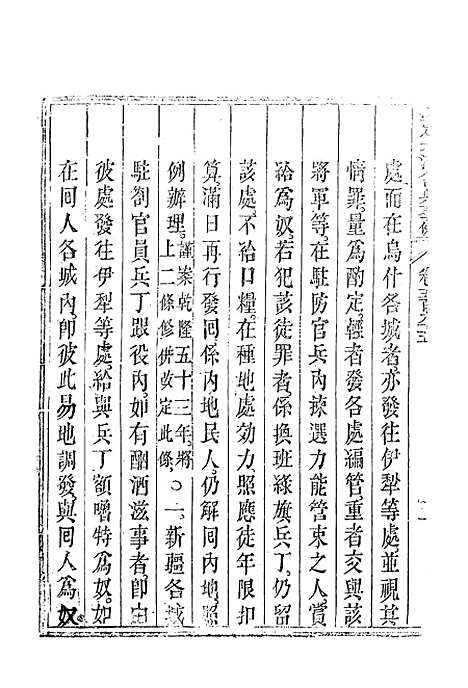 處而在烏什各城者亦發往伊犁等處並視其
情罪量爲酌定輕者發各處編管重者交與該
將軍等在駐防官兵內揀選力能管束之人賞
給爲奴若犯該徒罪者係換班綠旗兵丁仍留
該處不給口糧在種地處効力照應徒年限扣
算滿日再行發回係內地民人仍解回內地照
例辦理謹案乾隆五十三年將上二條修併改定此條〇一新疆各城
駐劄官員兵丁跟役內如有酗酒滋事者卽由
彼處發往伊犁等處給與兵丁額嚕特爲奴如
在回人各城內卽彼此易地調發與回人爲奴